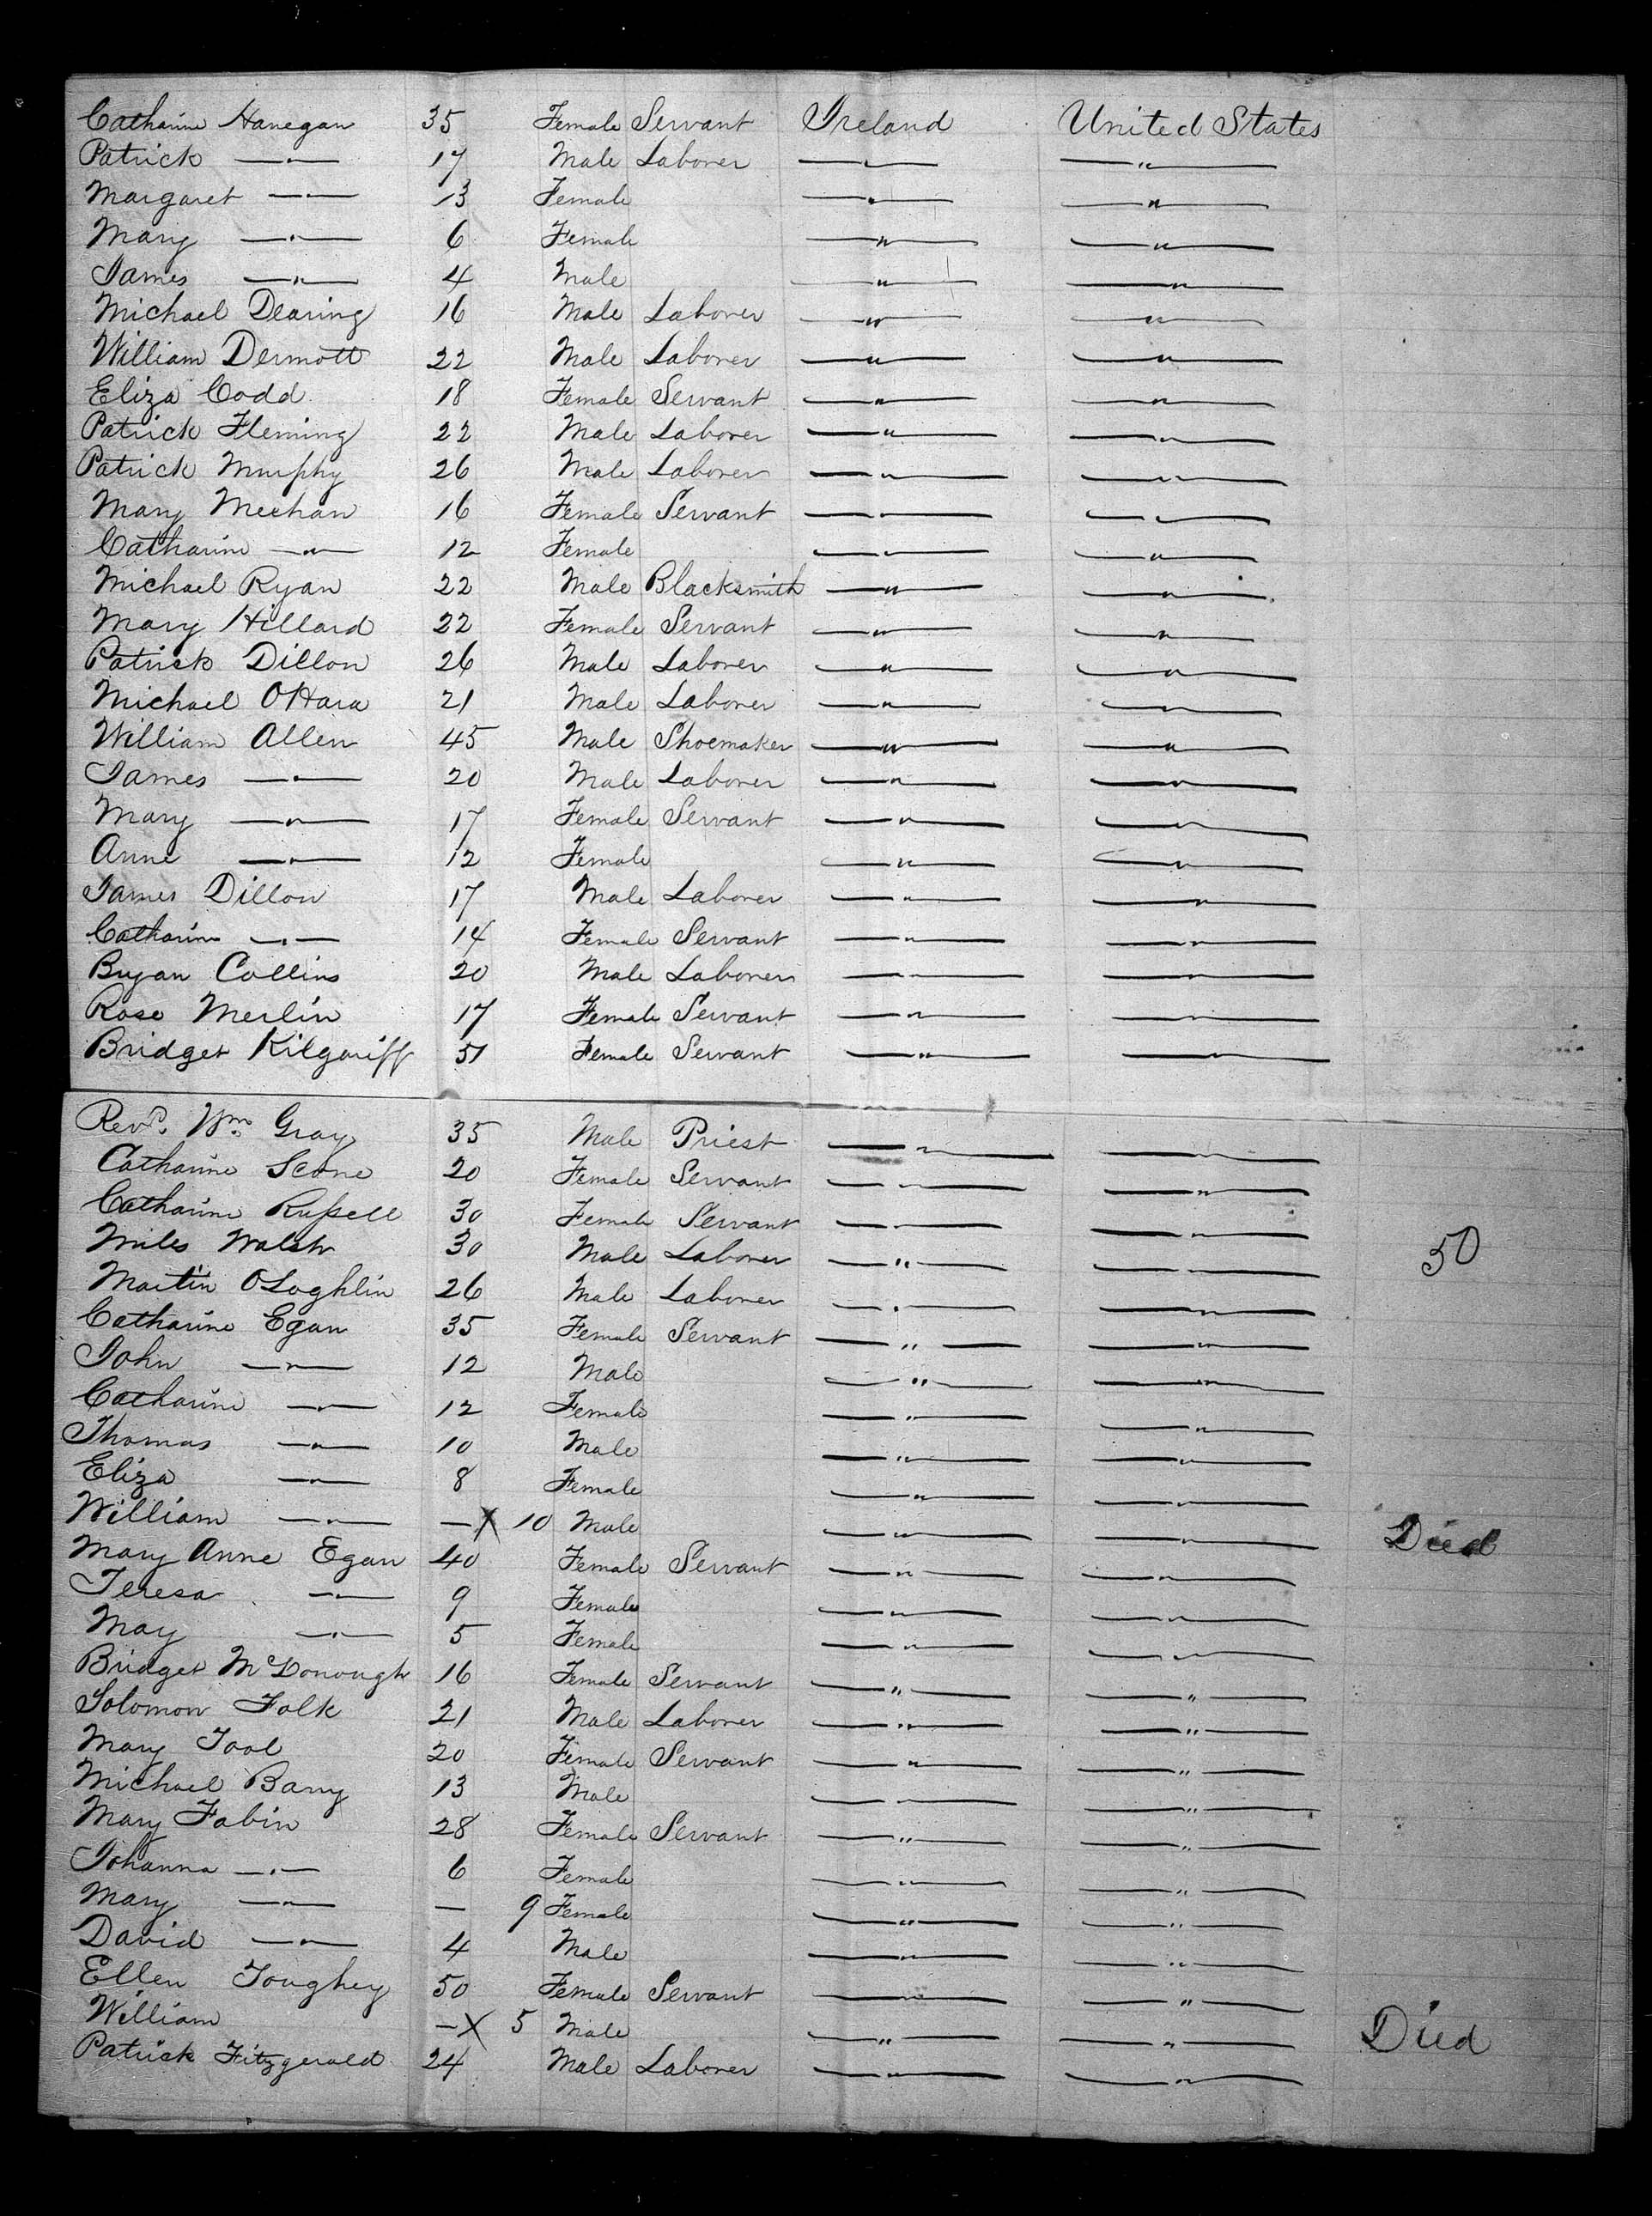 Catharine Hanegan 35 Female Servant Ireland United States
Patrick —"— 17 Male Laborer —"— —"—
Margaret —"— 13 Female —"— —"—
Mary —"— 6 Female —"— —"—
James —"— 4 Male —"— —"—
Michael Dearing 16 Male Laborer —"— —"—
William Dermott 22 Male Laborer —"— —"—
Eliza Codd 18 Female Servant —"— —"—
Patrick Fleming 22 Male Laborer —"— —"—
Patrick Murphy 26 Male Laborer —"— —"—
Mary Meehan 16 Female Servant —"— —"—
Catharine —"— 12 Female —"— —"—
Michael Ryan 22 Male Blacksmith —"— —"—
Mary Hillard 22 Female Servant —"— —"—
Patrick Dillon 26 Male Laborer —"— —"—
Michael OHara 21 Male Laborer —"— —"—
William Allen 45 Male Shoemaker —"— —"—
James —"— 20 Male Laborer —"— —"—
Mary —"— 17 Female Servant —"— —"—
Anne —"— 12 Female —"— —"—
James Dillon 17 Male Laborer —"— —"—
Catharine —"— 14 Female Servant —"— —"—
Bryan Collins 20 Male Laborer —"— —"—
Rose Merlin 17 Female Servant —"— —"—
Bridget Kilgariff 51 Female Servant —"— —"—
Revd. Wm. Gray 35 Male Priest —"— —"—
Catharine Scone 20 Female Servant —"— —"—
Catharine Russell 30 Female Servant —"— —"—
Miles Walsh 30 Male Laborer —"— —"— 50
Martin OLoghlin 26 Male Laborer —"— —"—
Catharine Egan 35 Female Servant —"— —"—
John —"— 12 Male —"— —"—
Catharine —"— 12 Female —"— —"—
Thomas —"— 10 Male —"— —"—
Eliza —"— 8 Female —"— —"—
William —"— —X 10 Male —"— —"— Died
Mary Anne Egan 40 Female Servant —"— —"—
Teresa —"— 9 Female —"— —"—
May —"— 5 Female —"— —"—
Bridget McDonough 16 Female Servant —"— —"—
Solomon Folk 21 Male Laborer —"— —"—
Mary Tool 20 Female Servant —"— —"—
Michael Barry 13 Male —"— —"—
Mary Fabin 28 Female Servant —"— —"—
Johanna —"— 6 Female —"— —"—
Mary —"— — 9 Female —"— —"—
David —"— 4 Male —"— —"—
Ellen Toughey 50 Female Servant —"— —"—
William —X 5 Male —"— —"— Died
Patrick Fitzgerald 24 Male Laborer —"— —"—